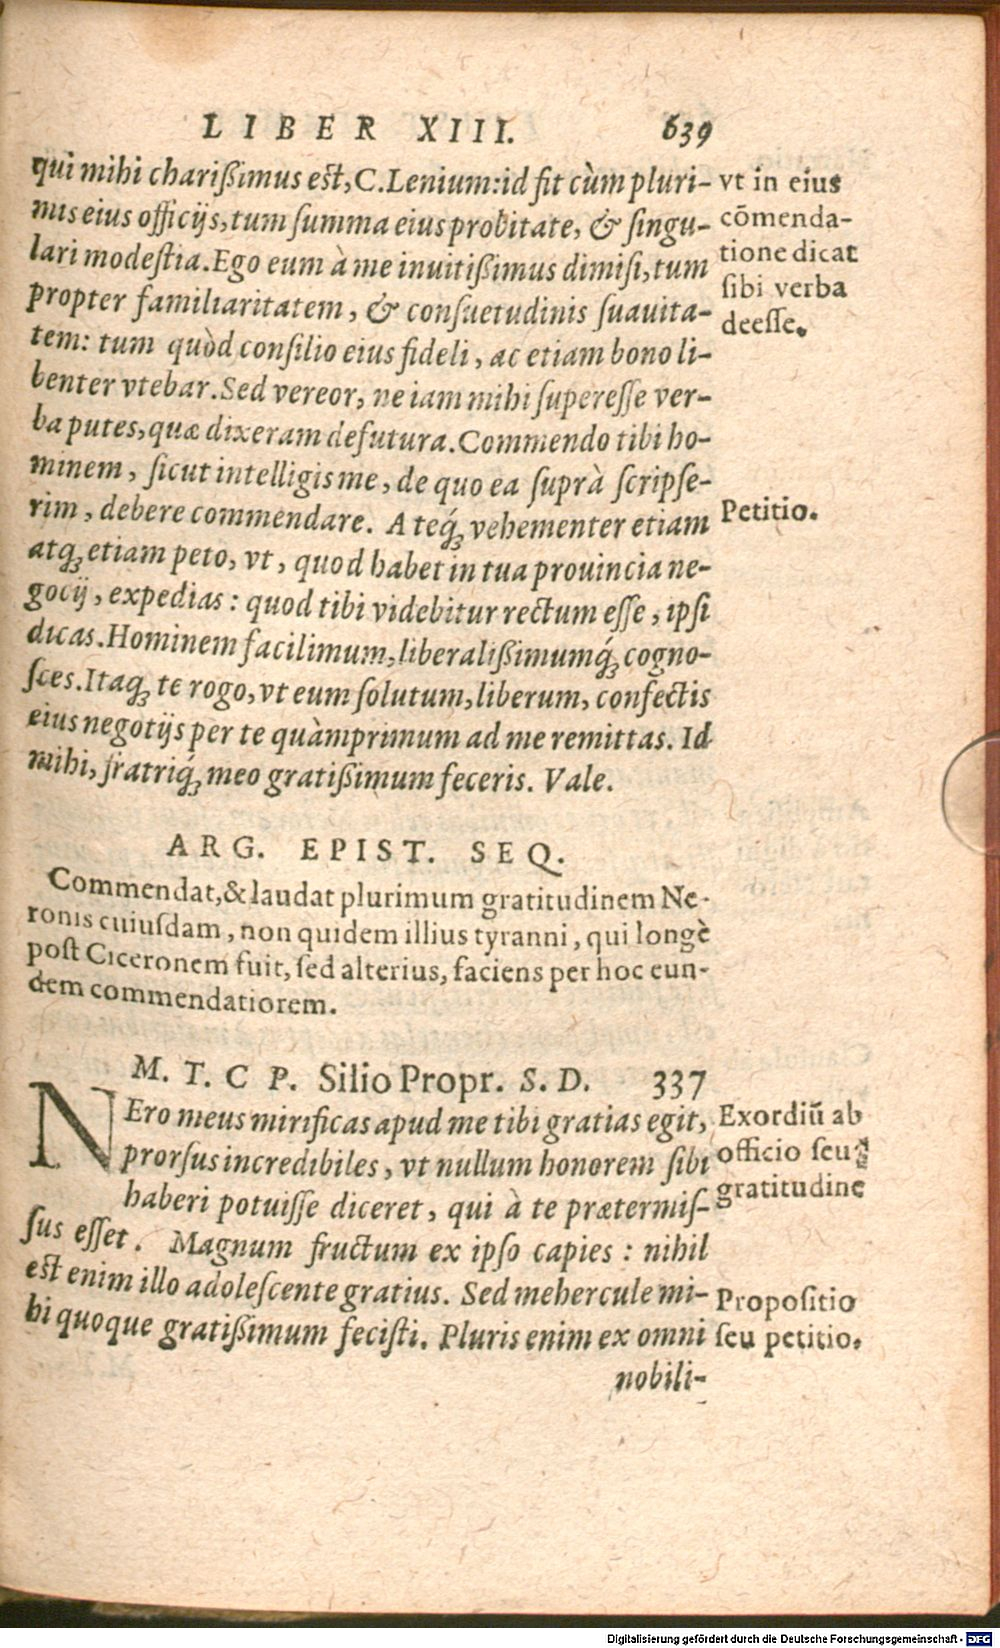 LIBER XIII. 639
qui mihi charißimus est, C. Lenium: id fit cùm pluri-
mis eius officijs, tum summa eius probitate, & singu-
lari modestia. Ego eum à me inuitißimus dimisi, tum
propter familiaritatem, & consuetudinis suauita-
tem: tum quòd consilio eius fideli, ac etiam bono li-
benter vtebar. Sed vereor, ne iam mihi superesse ver-
ba putes, quæ dixeram defutura. Commendo tibi ho-
minem, sicut intelligis me, de quo ea suprà scripse-
rim, debere commendare. A teq́; vehementer etiam
atq; etiam peto, vt, quod habet in tua prouincia ne-
gocij, expedias: quod tibi videbitur rectum esse, ipsi
dicas. Hominem facilimum, liberalißimumq́; cogno-
sces. Itaq; te rogo, vt eum solutum, liberum, confectis
eius negotijs per te quàmprimum ad me remittas. Id
mihi, fratriq́; meo gratißimum feceris. Vale.
vt in eius
cōmenda-
tione dicat
sibi verba
deesse.
Petitio.
ARG. EPIST. SEQ.
Commendat, & laudat plurimum gratitudinem Ne-
ronis cuiusdam, non quidem illius tyranni, qui longè
post Ciceronem fuit, sed alterius, faciens per hoc eun-
dem commendatiorem.
M. T. C P. Silio Propr. S. D. 337
NEro meus mirificas apud me tibi gratias egit,
prorsus incredibiles, vt nullum honorem sibi
haberi potuisse diceret, qui à te prætermis-
sus esset. Magnum fructum ex ipso capies: nihil
est enim illo adolescente gratius. Sed mehercule mi-
hi quoque gratißimum fecisti. Pluris enim ex omni
nobili-
Exordiū ab
officio seu
gratitudine
Propositio
seu petitio.
Digitalisierung gefördert durch die Deutsche Forschungsgemeinschaft - DFG